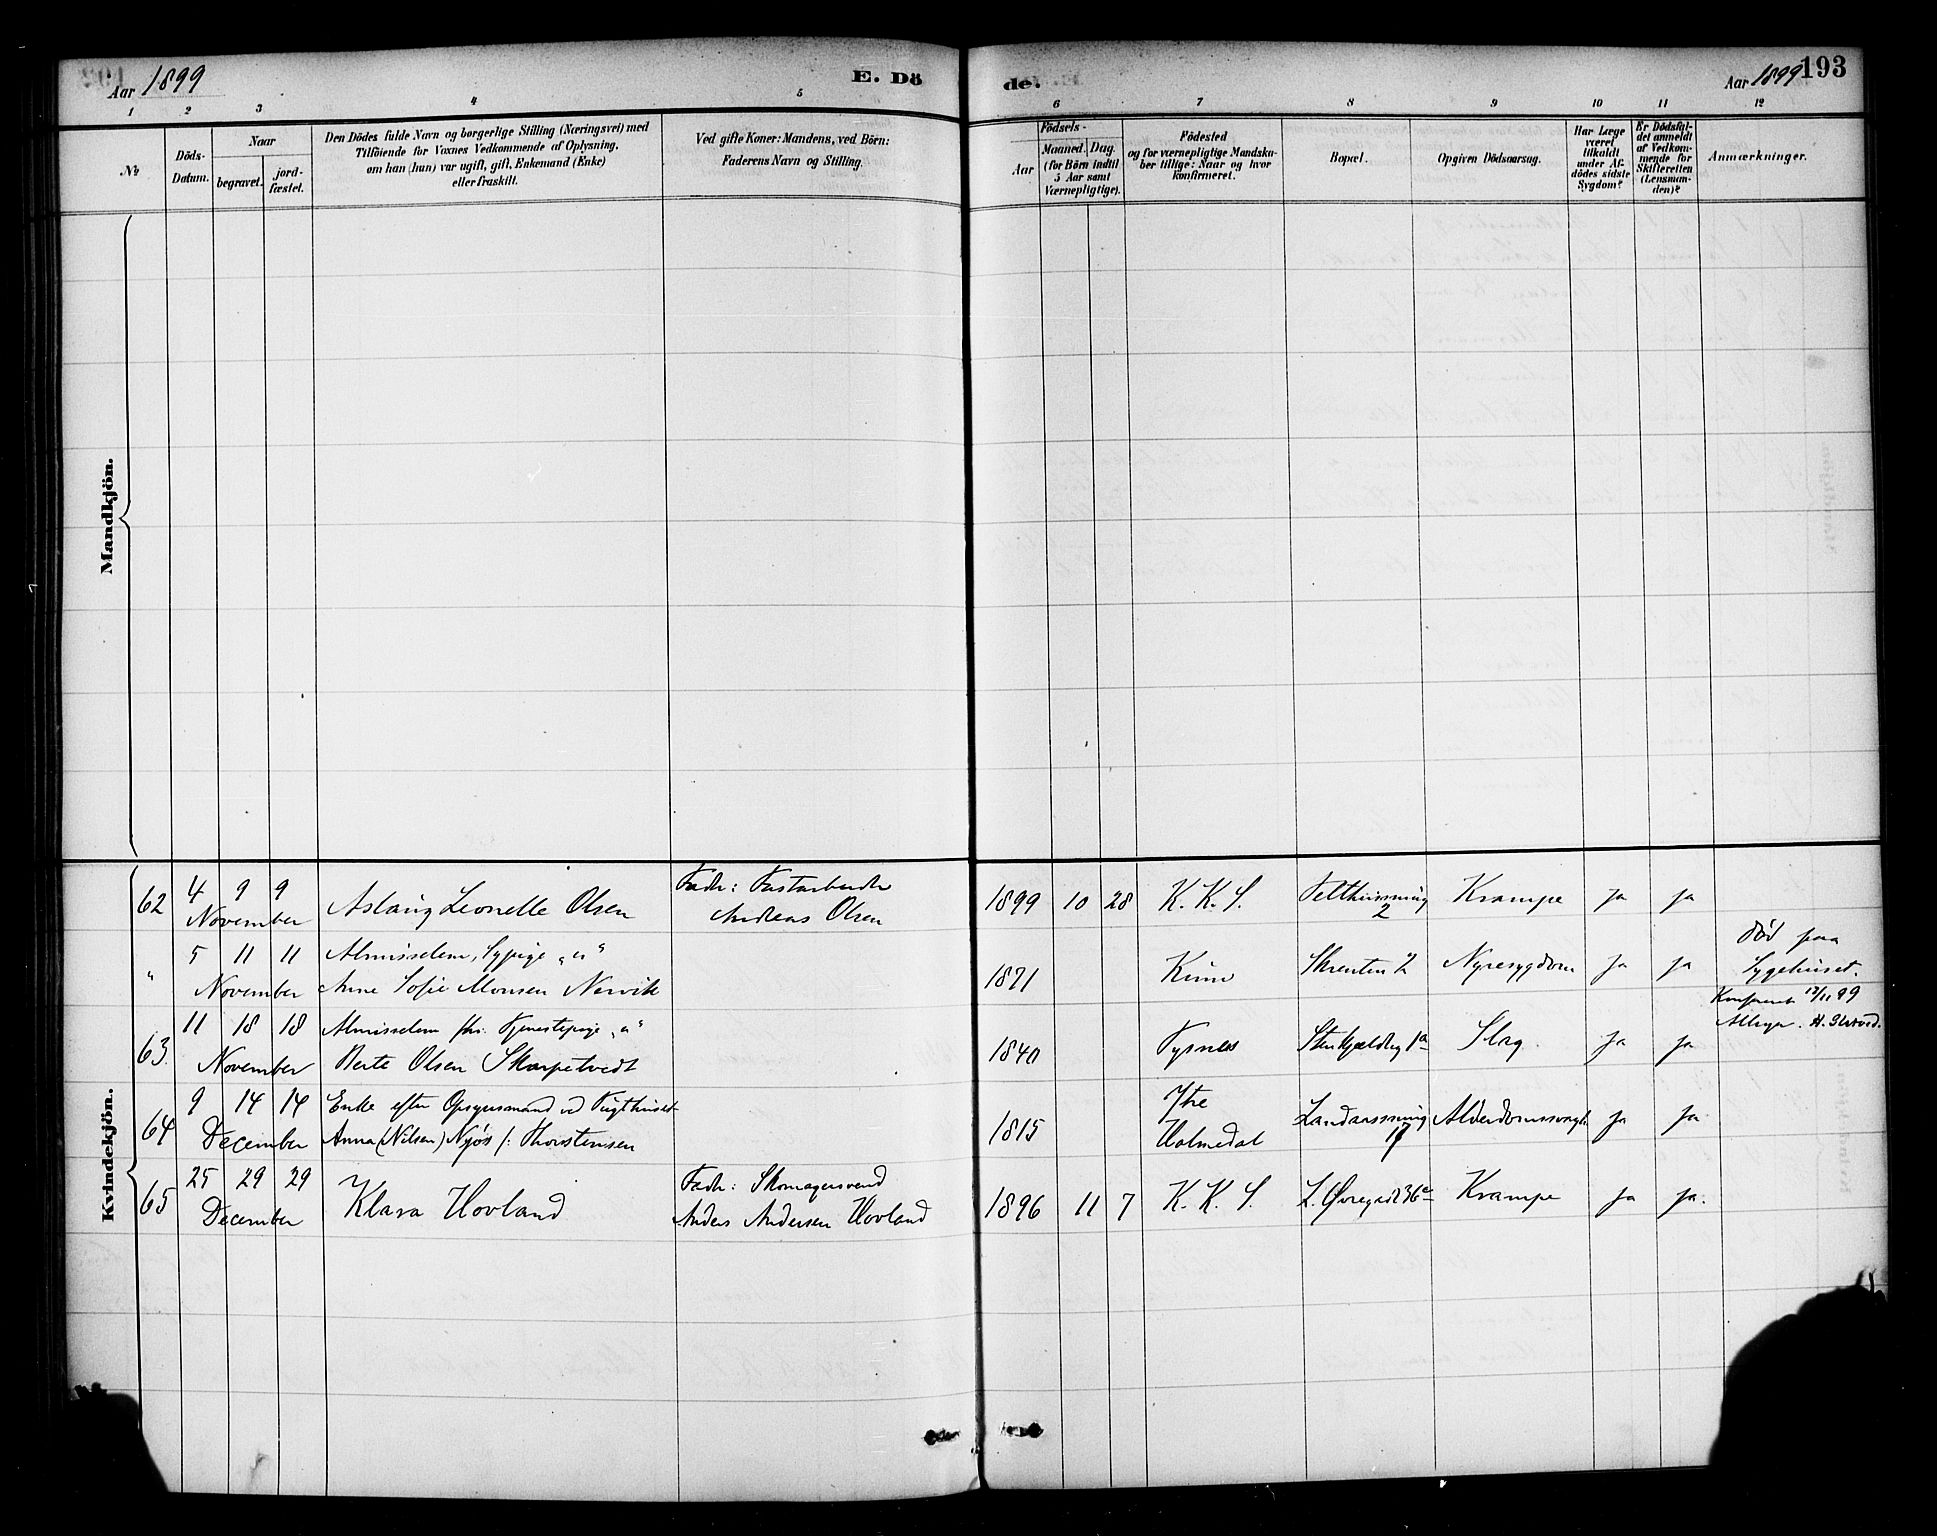 Aar 1899
E. Dö
de.
Aar 1899
193
1 2 3 4 5 6 7 8 9 10 11 12
№
Döds-
Datum.
Naar
begravet.
jord-
fæstet.
Den Dödes fulde Navn og borgerlige Stilling (Næringsvei) med
Tilföiende for Voxnes Vedkommende af Oplysning,
om han (hun) var ugift, gift, Enkemand (Enke)
eller fraskilt.
Ved gifte Koner: Mandens, ved Börn:
Faderens Navn og Stilling.
Födsels-
Aar
Maaned. Dag.
(for Börn indtil
5 Aar samt
Værnepligtige).
Födested
og for værnepligtige Mandska-
ber tillige: Naar og hvor
konfirmeret.
Bopæl.
Opgiven Dödsaarsag.
Har Læge
været
tilkaldt
under Af-
dödes sidste
Sygdom?
Er Dödsfal-
det anmeldt
af Vedkom-
mende for
Skifteretten
(Lensman-
den)?
Anmærkninger.
Mandkjön.
Kvindekjön.
62 4 9 9 Fadr: 
November Aslaug Leonelle Olsen Andreas Olsen 1899 10 28 K. K. S. 2 Krampe Ja Ja
" 5 11 11 Almisselem, Sypige „u“
November Anne Sofie Monsen Nervik 1871 Kinn Skrenten 2 Nyresygdom Ja Ja død paa
Sygehuset.
11 18 18 Almisselem fhv. Tjenestepige „u“
63. November Berte Olsen Skarpetvedt 1840 Tysnes 1a Slag. Ja Ja
9 14 14 Enke efter Opsynsmand ved Tugthuset
64 December Anna (Nilsen) Njøs f: Thorstensen 1815 Ytre
Holmedal Ja Ja
65 25 29 29 Fadr: Skomagersvend
December Klara Hovland Anders Andersen Hovland 1896 11 7 K. K. S. L. Øvregade 36 Krampe Ja Ja.